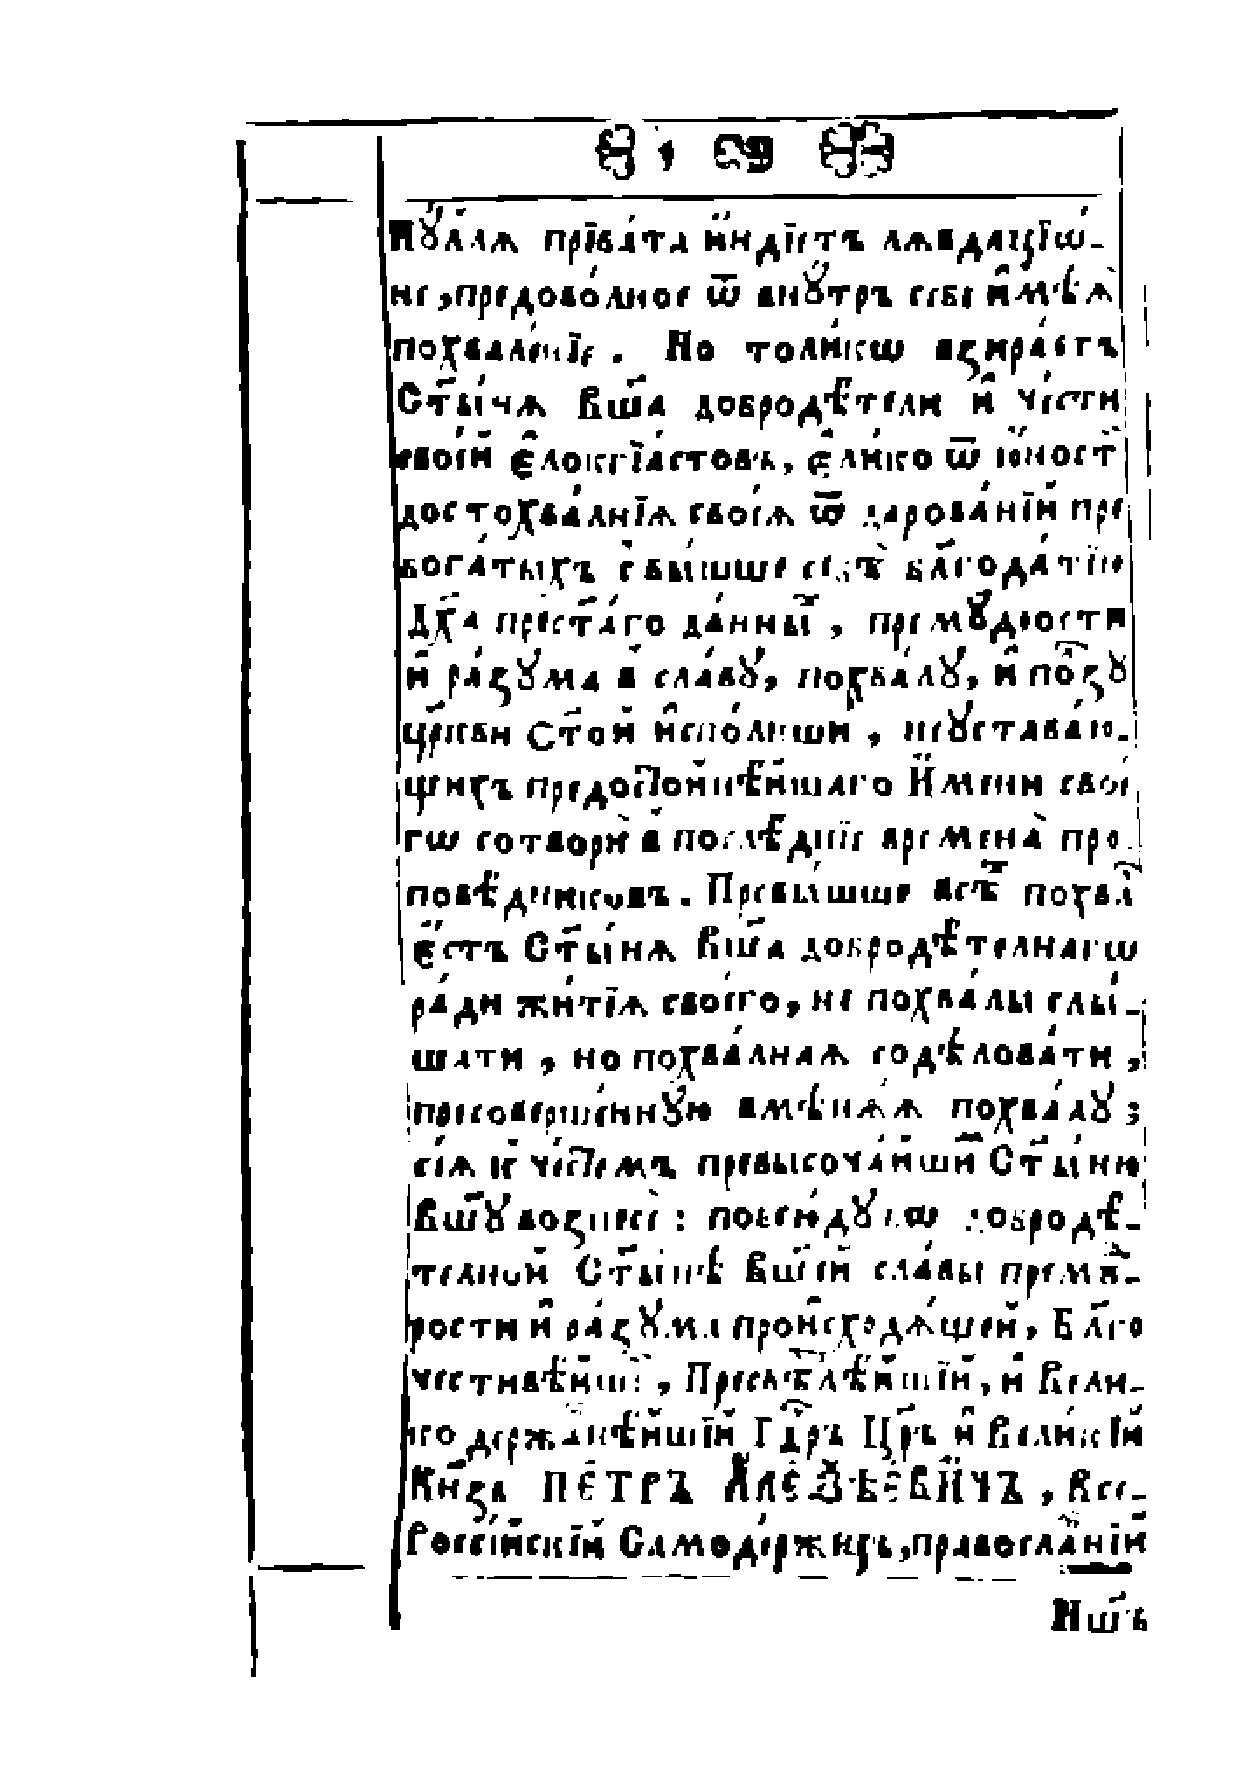 Нꙋ́ллѧ прїва́та и҆́ндїетъ лѧвдацїѡ́-
не, предово́лное ѿ внꙋ́трь себѐ и҆мѣ́ѧ
похвале́нїе. Но толи́кѡ взира́етъ
Ст҃ы́нѧ Вш҃а добродѣ́тели и҆ че́сти
свое́й є҆локгїа́стовъ, є҆ли́ко ѿ ю҆́ност
достохва́лнїѧ своеѧ̀ ѿ дарова́нїй пре
бога́тыхъ свы́шше себѣ̀ бл҃года́тїю
Дх҃а прест҃а́го да́нны, премꙋ́дрости
и҆ ра́зꙋма в̾ сла́вꙋ, похва́лꙋ, и҆ по́лзꙋ
цр҃кви ст҃о́й и҆спо́лнши, неꙋстава́ю-
щихъ предосто́йнѣйшаго и҆́мени свое
гѡ̀ сотворѝ в̾ послѣ́днїе времена̀ про-
повѣ́дниковъ. Превы́шше всѣ́ похва́л
є҆́сть Ст҃ы́нѧ Вш҃а добродѣ́телнагѡ
ра́ди житїѧ̀ своегѡ̀, не похвалы̀ слы́-
шати, но похва́лнаѧ содѣ́ловати,
пресоверше́ннꙋю вмѣнѧ́ѧ похвалꙋ̀;
сїѧ̀ и҆ че́стемъ превысоча́йши Ст҃ы́ню
Вш҃ꙋ вознесѐ: повсю́дꙋ бо добродѣ́-
телной Ст҃ы́нѣ Вш҃ей сла́вы премꙋ́-
рости и҆ ра́зꙋма происходѧ́щей, Бл҃го
честивѣ́йшї, Пресвѣтлѣ́йшїй, и҆ Вели-
кодержа́внѣйшїй Гд҃рь Цр҃ь и҆ Вели́кїй
Кн҃зь ПЕ́ТРЪ А҆ЛЕѮѢ́ЕВИЧЪ, Все-
Россі́йскїй Самоде́ржецъ, правосла́внїй
Нш҃ъ